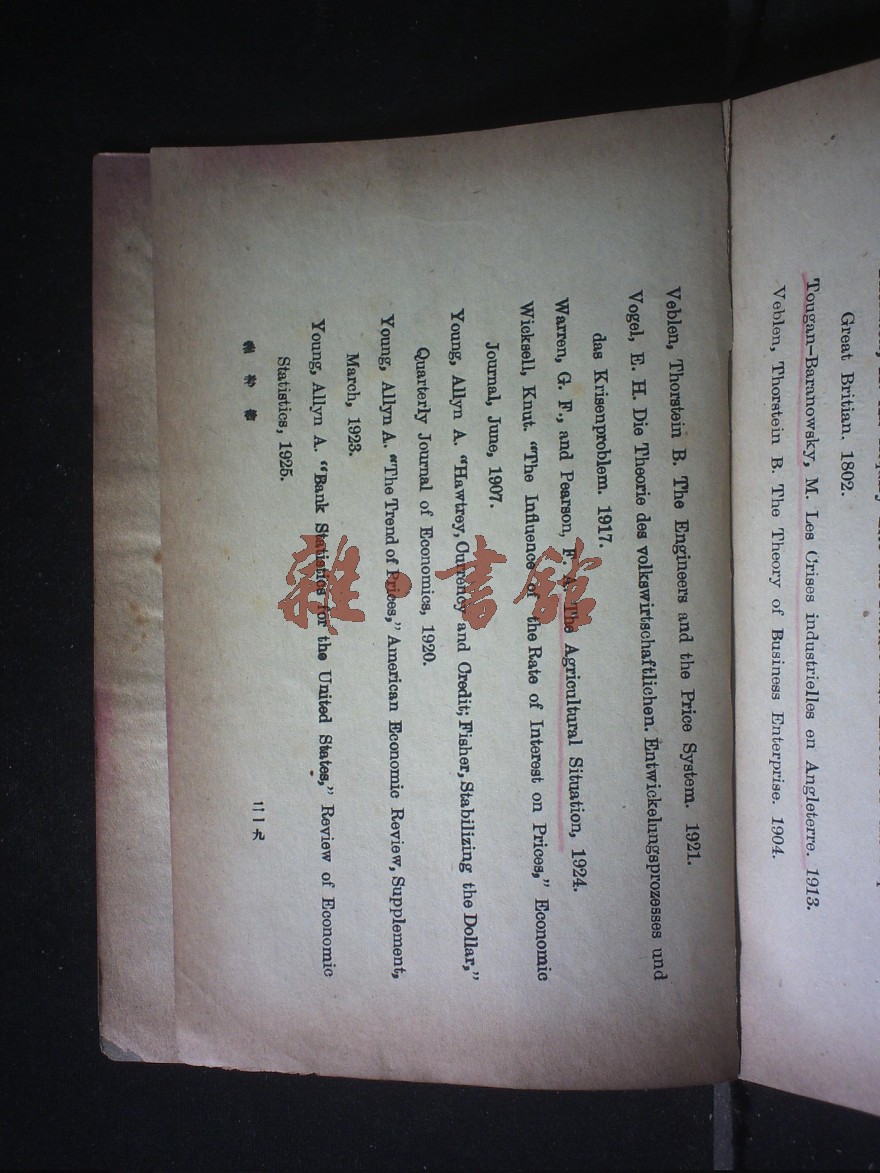 Great Britian. 1802.
Tougan-Baranowsky, M. Les Crises industrielles en Angleterre. 1913.
Veblen, Thorstein B. The Theory of Business Enterprise. 1904.
Veblen, Thorstein B. The Engineers and the Price System. 1921.
Vogel, E. H. Die Theorie des volkswirtschaftlichen. Entwickelungsprozesses und
das Krisenproblem. 1917.
Warren, G. F., and Pearson, F. A. The Agricultural Situation, 1924.
Wicksell, Knut. "The Influence of the Rate of Interest on Prices," Economic
Journal, June, 1907.
Young, Allyn A. "Hawtrey, Currency and Credit; Fisher, Stabilizing the Dollar,"
Quarterly Journal of Economics, 1920.
Young, Allyn A. "The Trend of Prices," American Economic Review, Supplement,
March, 1923.
Young, Allyn A. "Bank Statistics for the United States," Review of Economic
Statistics, 1925.